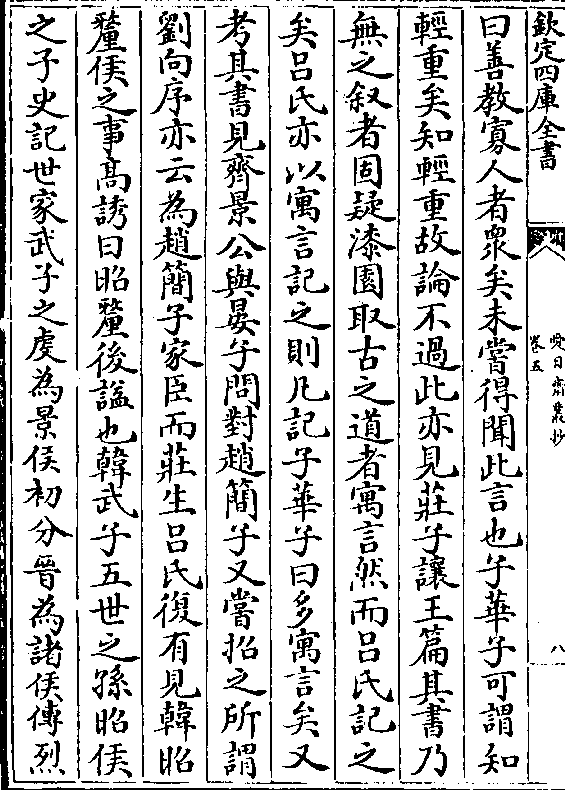 欽定四庫全書
愛日齋叢抄
卷五
八
曰善教寡人者衆矣未嘗得聞此言也子華子可謂知
輕重矣知輕重故論不過此亦見莊子讓王篇其書乃
無之叙者固疑漆園取古之道者寓言然而吕氏記之
矣吕氏亦以寓言記之則凡記子華子曰多寓言矣又
考其書見齊景公與晏子問對趙簡子又嘗招之所謂
劉向序亦云為趙簡子家臣而莊生吕氏復有見韓昭
釐侯之事髙誘曰昭釐後諡也韓武子五世之孫昭侯
之子史記世家武子之䖍為景侯初分晉為諸侯傳烈